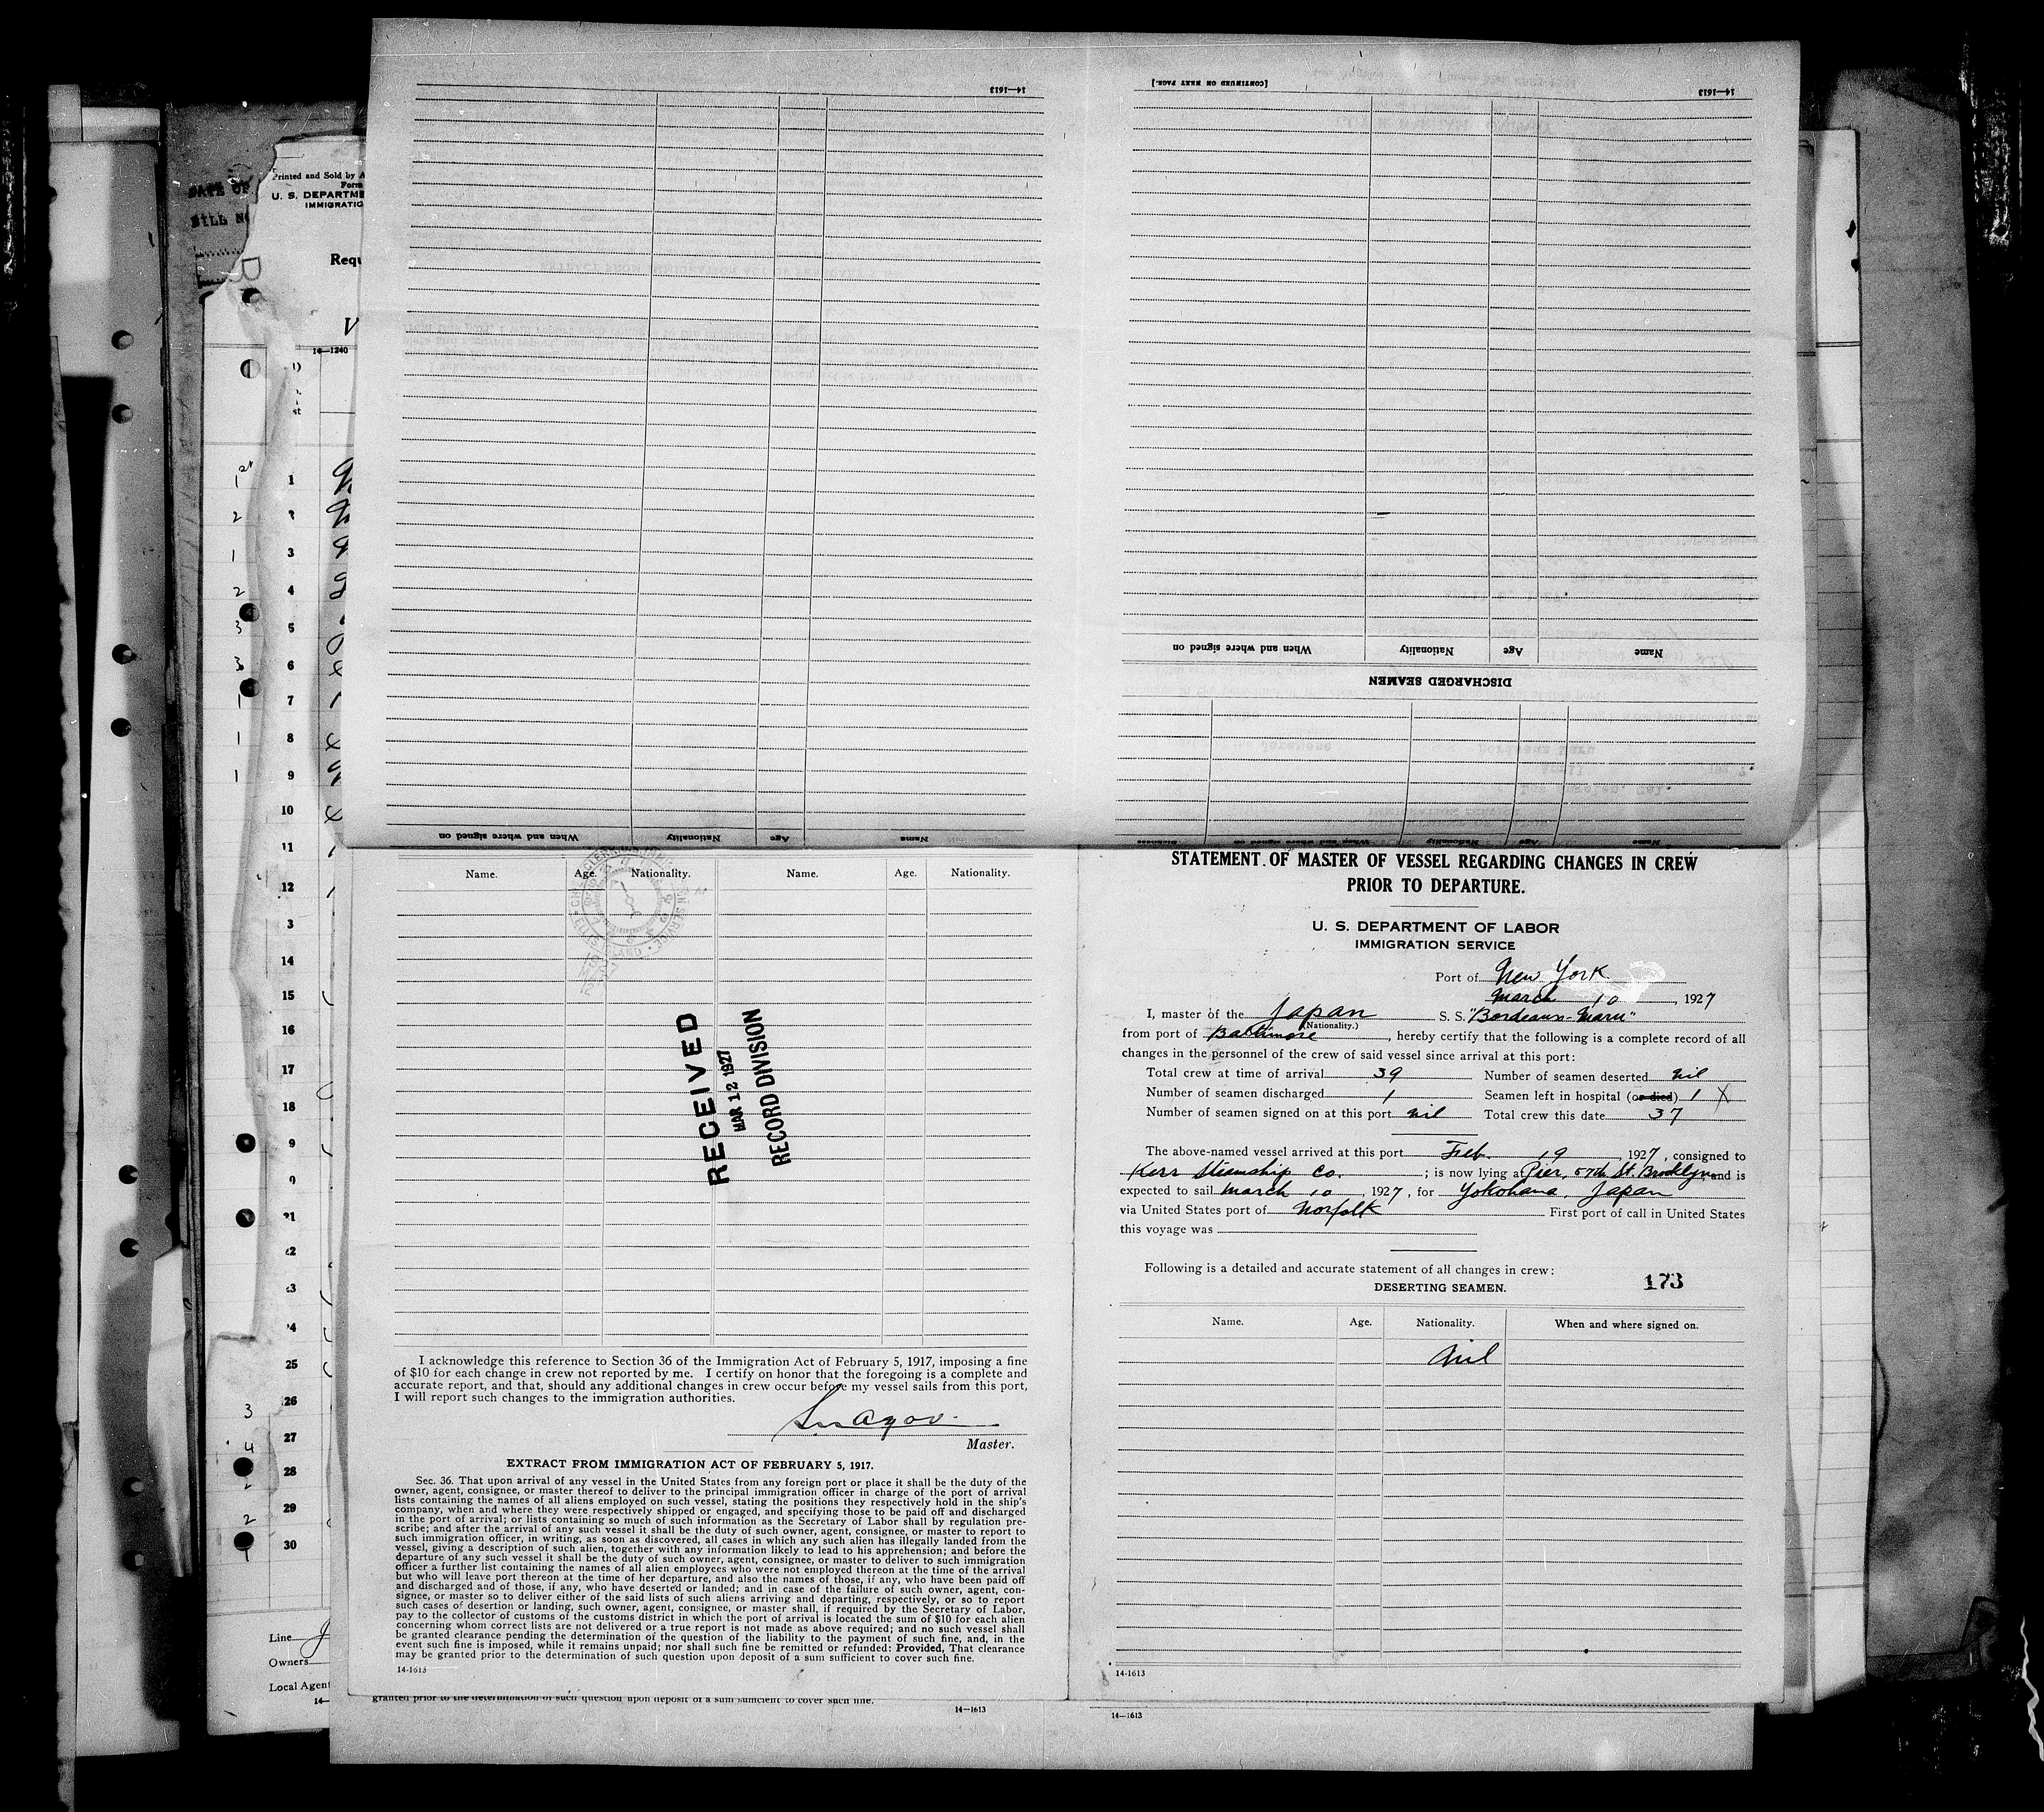 14—1613
[CONTINUED ON NEXT PAGE.]
14—1613
When and where signed on Nationality Age Name
DISCHARGED SEAMEN
When and where signed on Nationality Age Name
DATE OF
BILL NO
Printed and Sold by A
Form
U. S. DEPARTME
IMMIGRATIO
Requ
V
14—1240
1
2
3
4
5
6
7
8
9
10
11
12
3
14
15
16
17
18
9
0
21
22
23
24
25
26
27
28
29
30
Line
Owners
Local Agent
Name. Age. Nationality. Name. Age. Nationality.
RECEIVED
MAR 12 1927
RECORD DIVISION
I acknowledge this reference to Section 36 of the Immigration Act of February 5, 1917, imposing a fine
of $10 for each change in crew not reported by me. I certify on honor that the foregoing is a complete and
accurate report, and that, should any additional changes in crew occur before my vessel sails from this port,
I will report such changes to the immigration authorities.
Master.
EXTRACT FROM IMMIGRATION ACT OF FEBRUARY 5, 1917.
Sec. 36. That upon arrival of any vessel in the United States from any foreign port or place it shall be the duty of the
owner, agent, consignee, or master thereof to deliver to the principal immigration officer in charge of the port of arrival
lists containing the names of all aliens employed on such vessel, stating the positions they respectively hold in the ship's
company, when and where they were respectively shipped or engaged, and specifying those to be paid off and discharged
in the port of arrival; or lists containing so much of such information as the Secretary of Labor shall by regulation pre-
scribe; and after the arrival of any such vessel it shall be the duty of such owner, agent, consignee, or master to report to
such immigration officer, in writing, as soon as discovered, all cases in which any such alien has illegally landed from the
vessel, giving a description of such alien, together with any information likely to lead to his apprehension; and before the
departure of any such vessel it shall be the duty of such owner, agent, consignee, or master to deliver to such immigration
officer a further list containing the names of all alien employees who were not employed thereon at the time of the arrival
but who will leave port thereon at the time of her departure, and also the names of those, if any, who have been paid off
and discharged and of those, if any, who have deserted or landed; and in case of the failure of such owner, agent, con-
signee, or master so to deliver either of the said lists of such aliens arriving and departing, respectively, or so to report
such cases of desertion or landing, such owner, agent, consignee, or master shall, if required by the Secretary of Labor,
pay to the collector of customs of the customs district in which the port of arrival is located the sum of $10 for each alien
concerning whom correct lists are not delivered or a true report is not made as above required; and no such vessel shall
be granted clearance pending the determination of the question of the liability to the payment of such fine, and, in the
event such fine is imposed, while it remains unpaid; nor shall such fine be remitted or refunded: Provided, That clearance
may be granted prior to the determination of such question upon deposit of a sum sufficient to cover such fine.
14-1613
granted prior to the determination of such question upon deposit of a sum sufficient to cover such fine.
14—1613
STATEMENT OF MASTER OF VESSEL REGARDING CHANGES IN CREW
PRIOR TO DEPARTURE.
U. S. DEPARTMENT OF LABOR
IMMIGRATION SERVICE
Port of New York
March 10, 1927
I, master of the Japan S. S. "Bordeaux-Maru"
(Nationality.)
from port of Baltimore, hereby certify that the following is a complete record of all
changes in the personnel of the crew of said vessel since arrival at this port:
Total crew at time of arrival 39 Number of seamen deserted nil
Number of seamen discharged 1 Seamen left in hospital (or died) 1 X
Number of seamen signed on at this port nil Total crew this date 37
The above-named vessel arrived at this port Feb. 19, 1927, consigned to
Kerr Steamship Co.; is now lying at Pier, 57th St. Brooklyn, and is
expected to sail March 10, 1927, for Yokohama, Japan
via United States port of Norfolk First port of call in United States
this voyage was
Following is a detailed and accurate statement of all changes in crew:
173
DESERTING SEAMEN.
Name. Age. Nationality. When and where signed on.
Nil
14-1613
14—1613